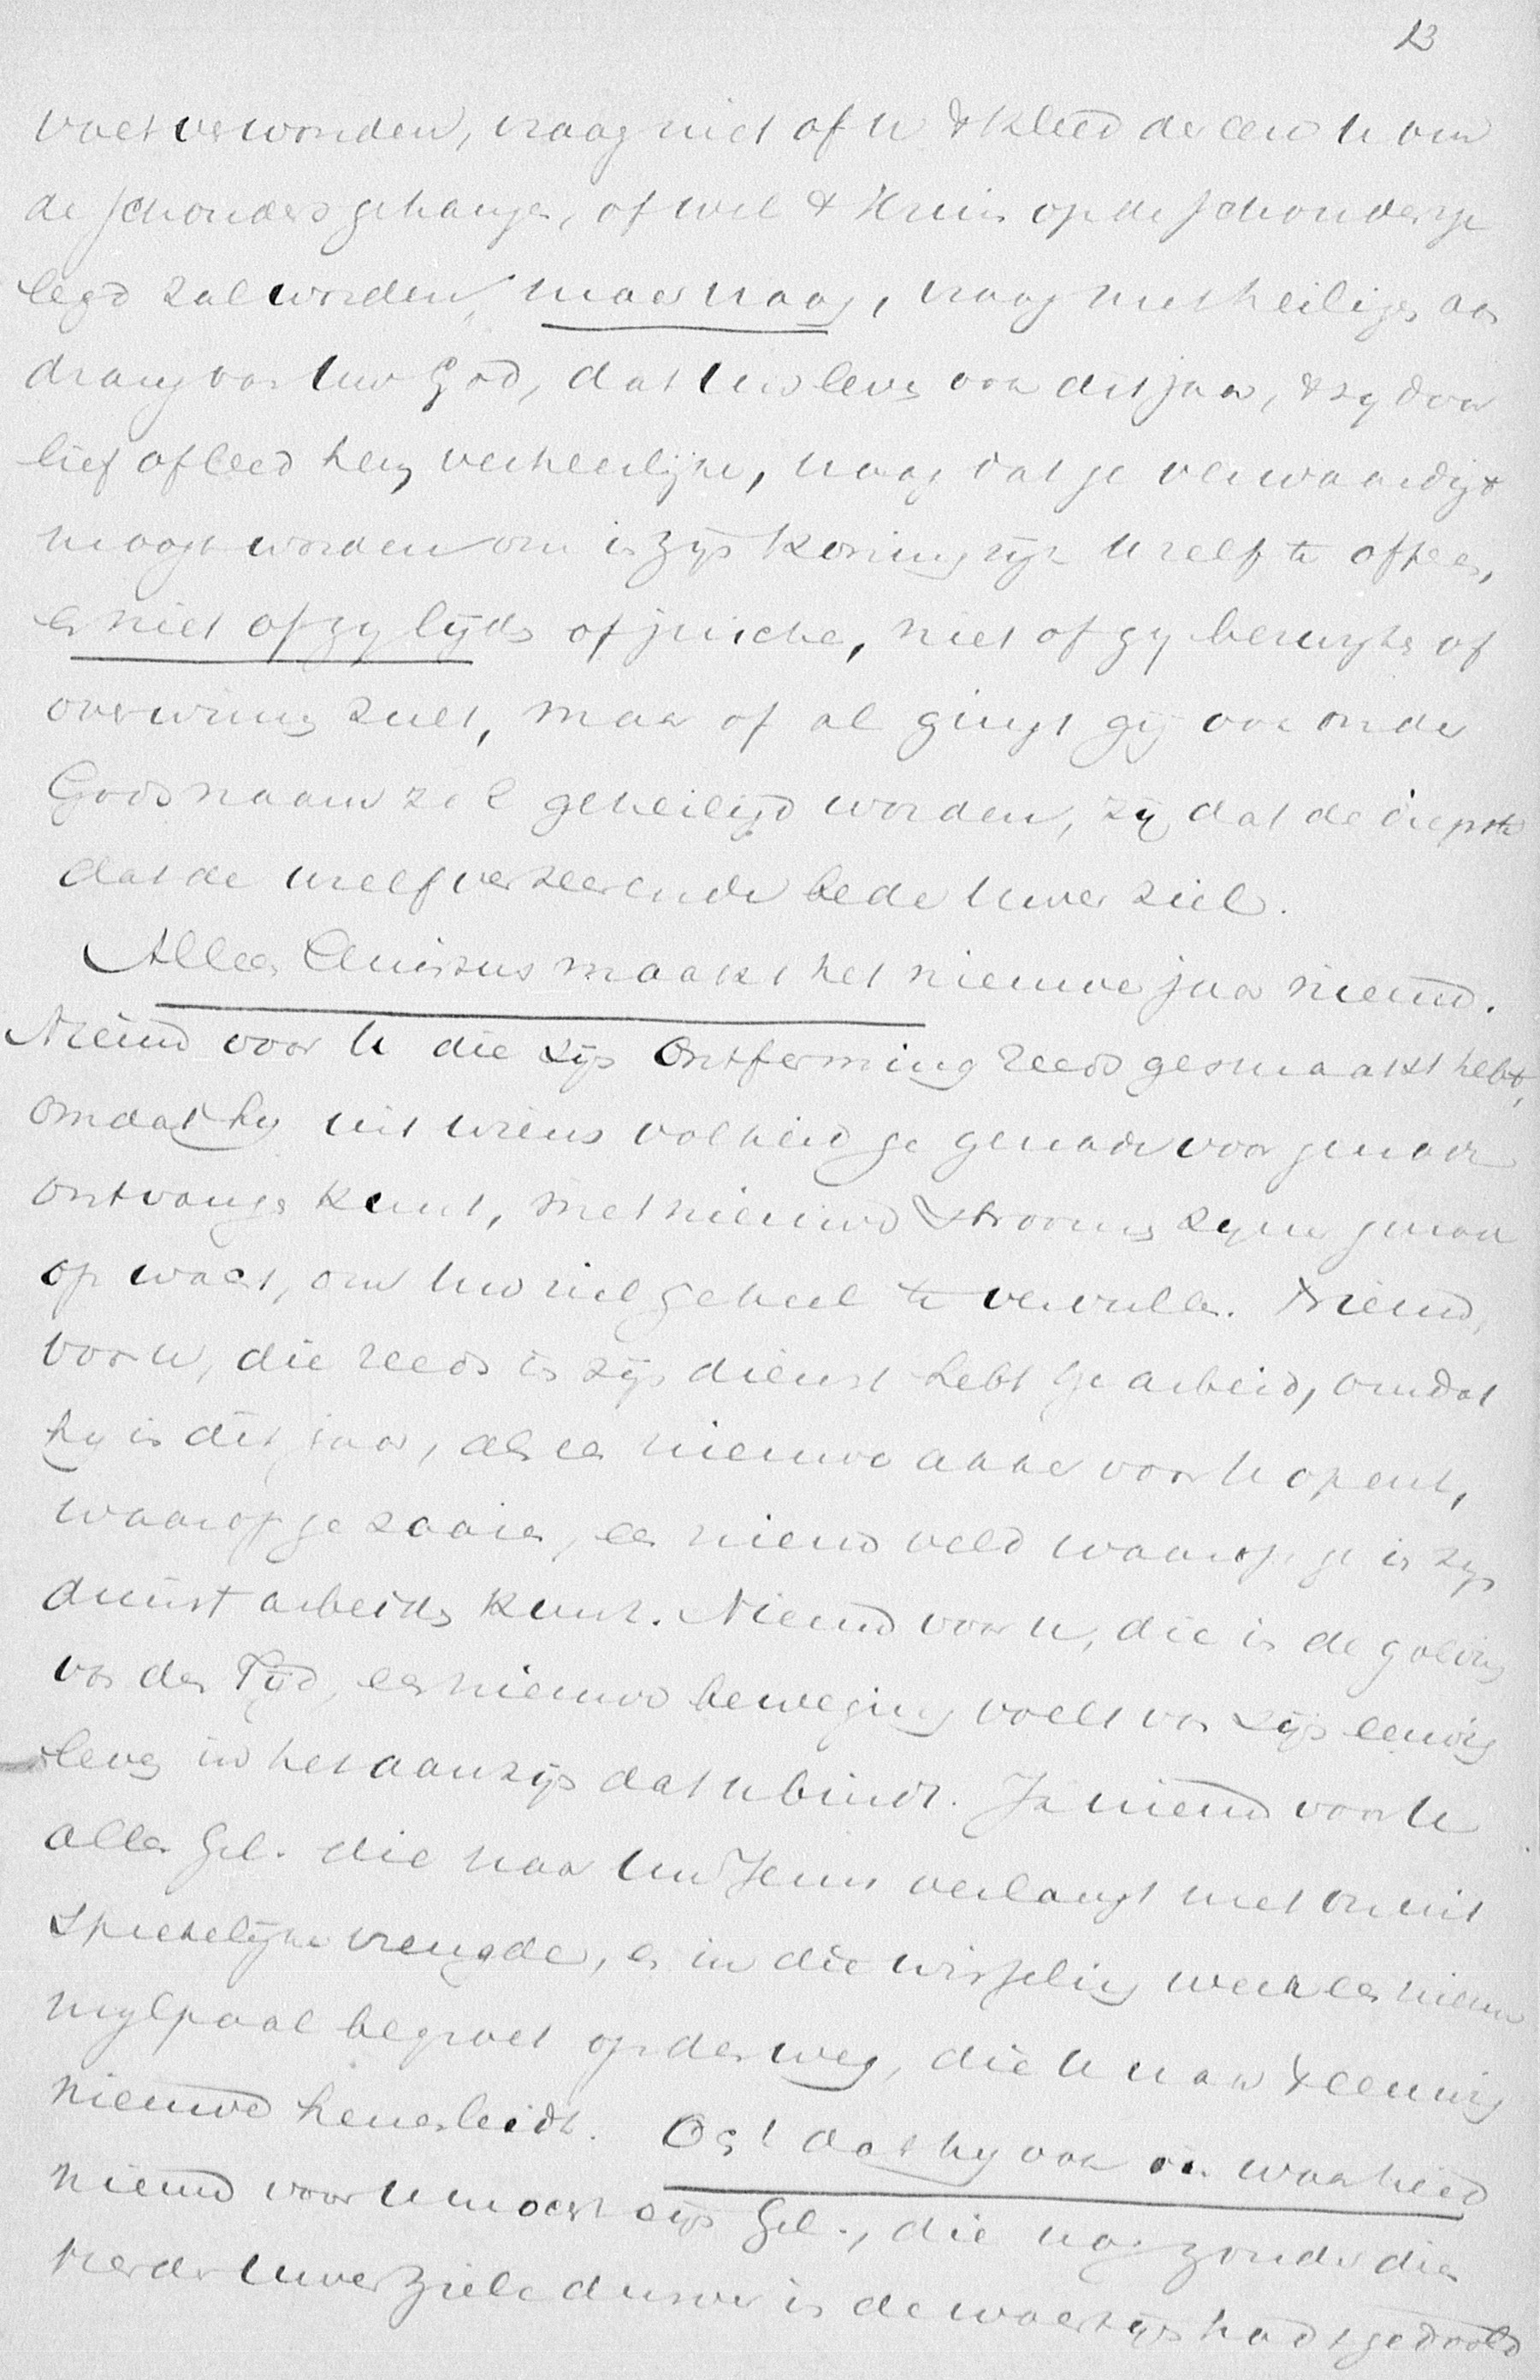 13
voet verwonden, vraag niet of u 't kleed der eere u om
de schouders gehangen, of wel 't kruis op de schouders ge
legd zal worden, maar vraag, vraag met heiligen aan
drang van uw God, dat uw leven ook dit jaar, 't zy door
lief of leed hem verheerlijke, vraag dat je verwaardigd
moogt worden om in Zijn Koningrijk u zelf te offeren,
en niet of gy lijden of juichen, niet of gy bezwyken of
overwinnen zult, maar of al gingt gij ook onder
Gods naam zal geheiligd worden, zij dat de diepste
dat de uzelf verteerende bede uwer ziel.
Alleen Christus maakt het nieuwe jaar nieuw.
Nieuw voor u die zijn ontferming reeds gesmaakt hebt,
omdat hy uit wiens volheid ge genade voor genade
ontvangen kunt, met nieuwe stroomen zyner genade
op wacht, om uw ziel geheel te vervullen. Nieuw
voor u, die reeds in zijn dienst hebt gearbeid, omdat
hy in dit jaar, als een nieuwe akker voor u opent,
waarop ge zaaien, een nieuw veld waarop ge in zyn
dienst arbeiden kunt. Nieuw voor u, die in de golving
van den Tijd, een nieuwe beweging voelt van zijn eeuwig
leven in het aanzijn dat u bindt. Ja nieuw voor u
allen Gel. die naar uw Jezus verlangt met onuit
sprekelijke vreugde, en in die wisseling weer een nieuwe
mylpaal begroet op den weg, die u naar 't eeuwig
nieuwe henenleidt. Och! dat hy ook in waarheid
nieuw voor u mocht zijn Gel., die nog zonder dien
Herder uwer ziele dusver in de woestijn hadt gedoold